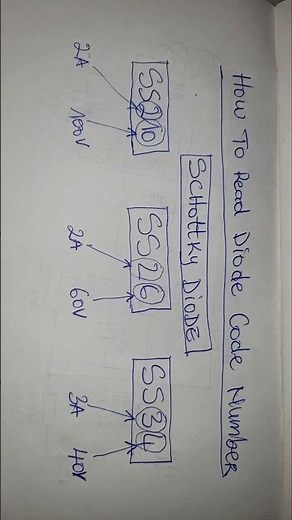 How To Read Diode Code Number
SCHOTTKY DIODE
SS210 SS26 SS34
2A 100V 2A 60V 3A 40V